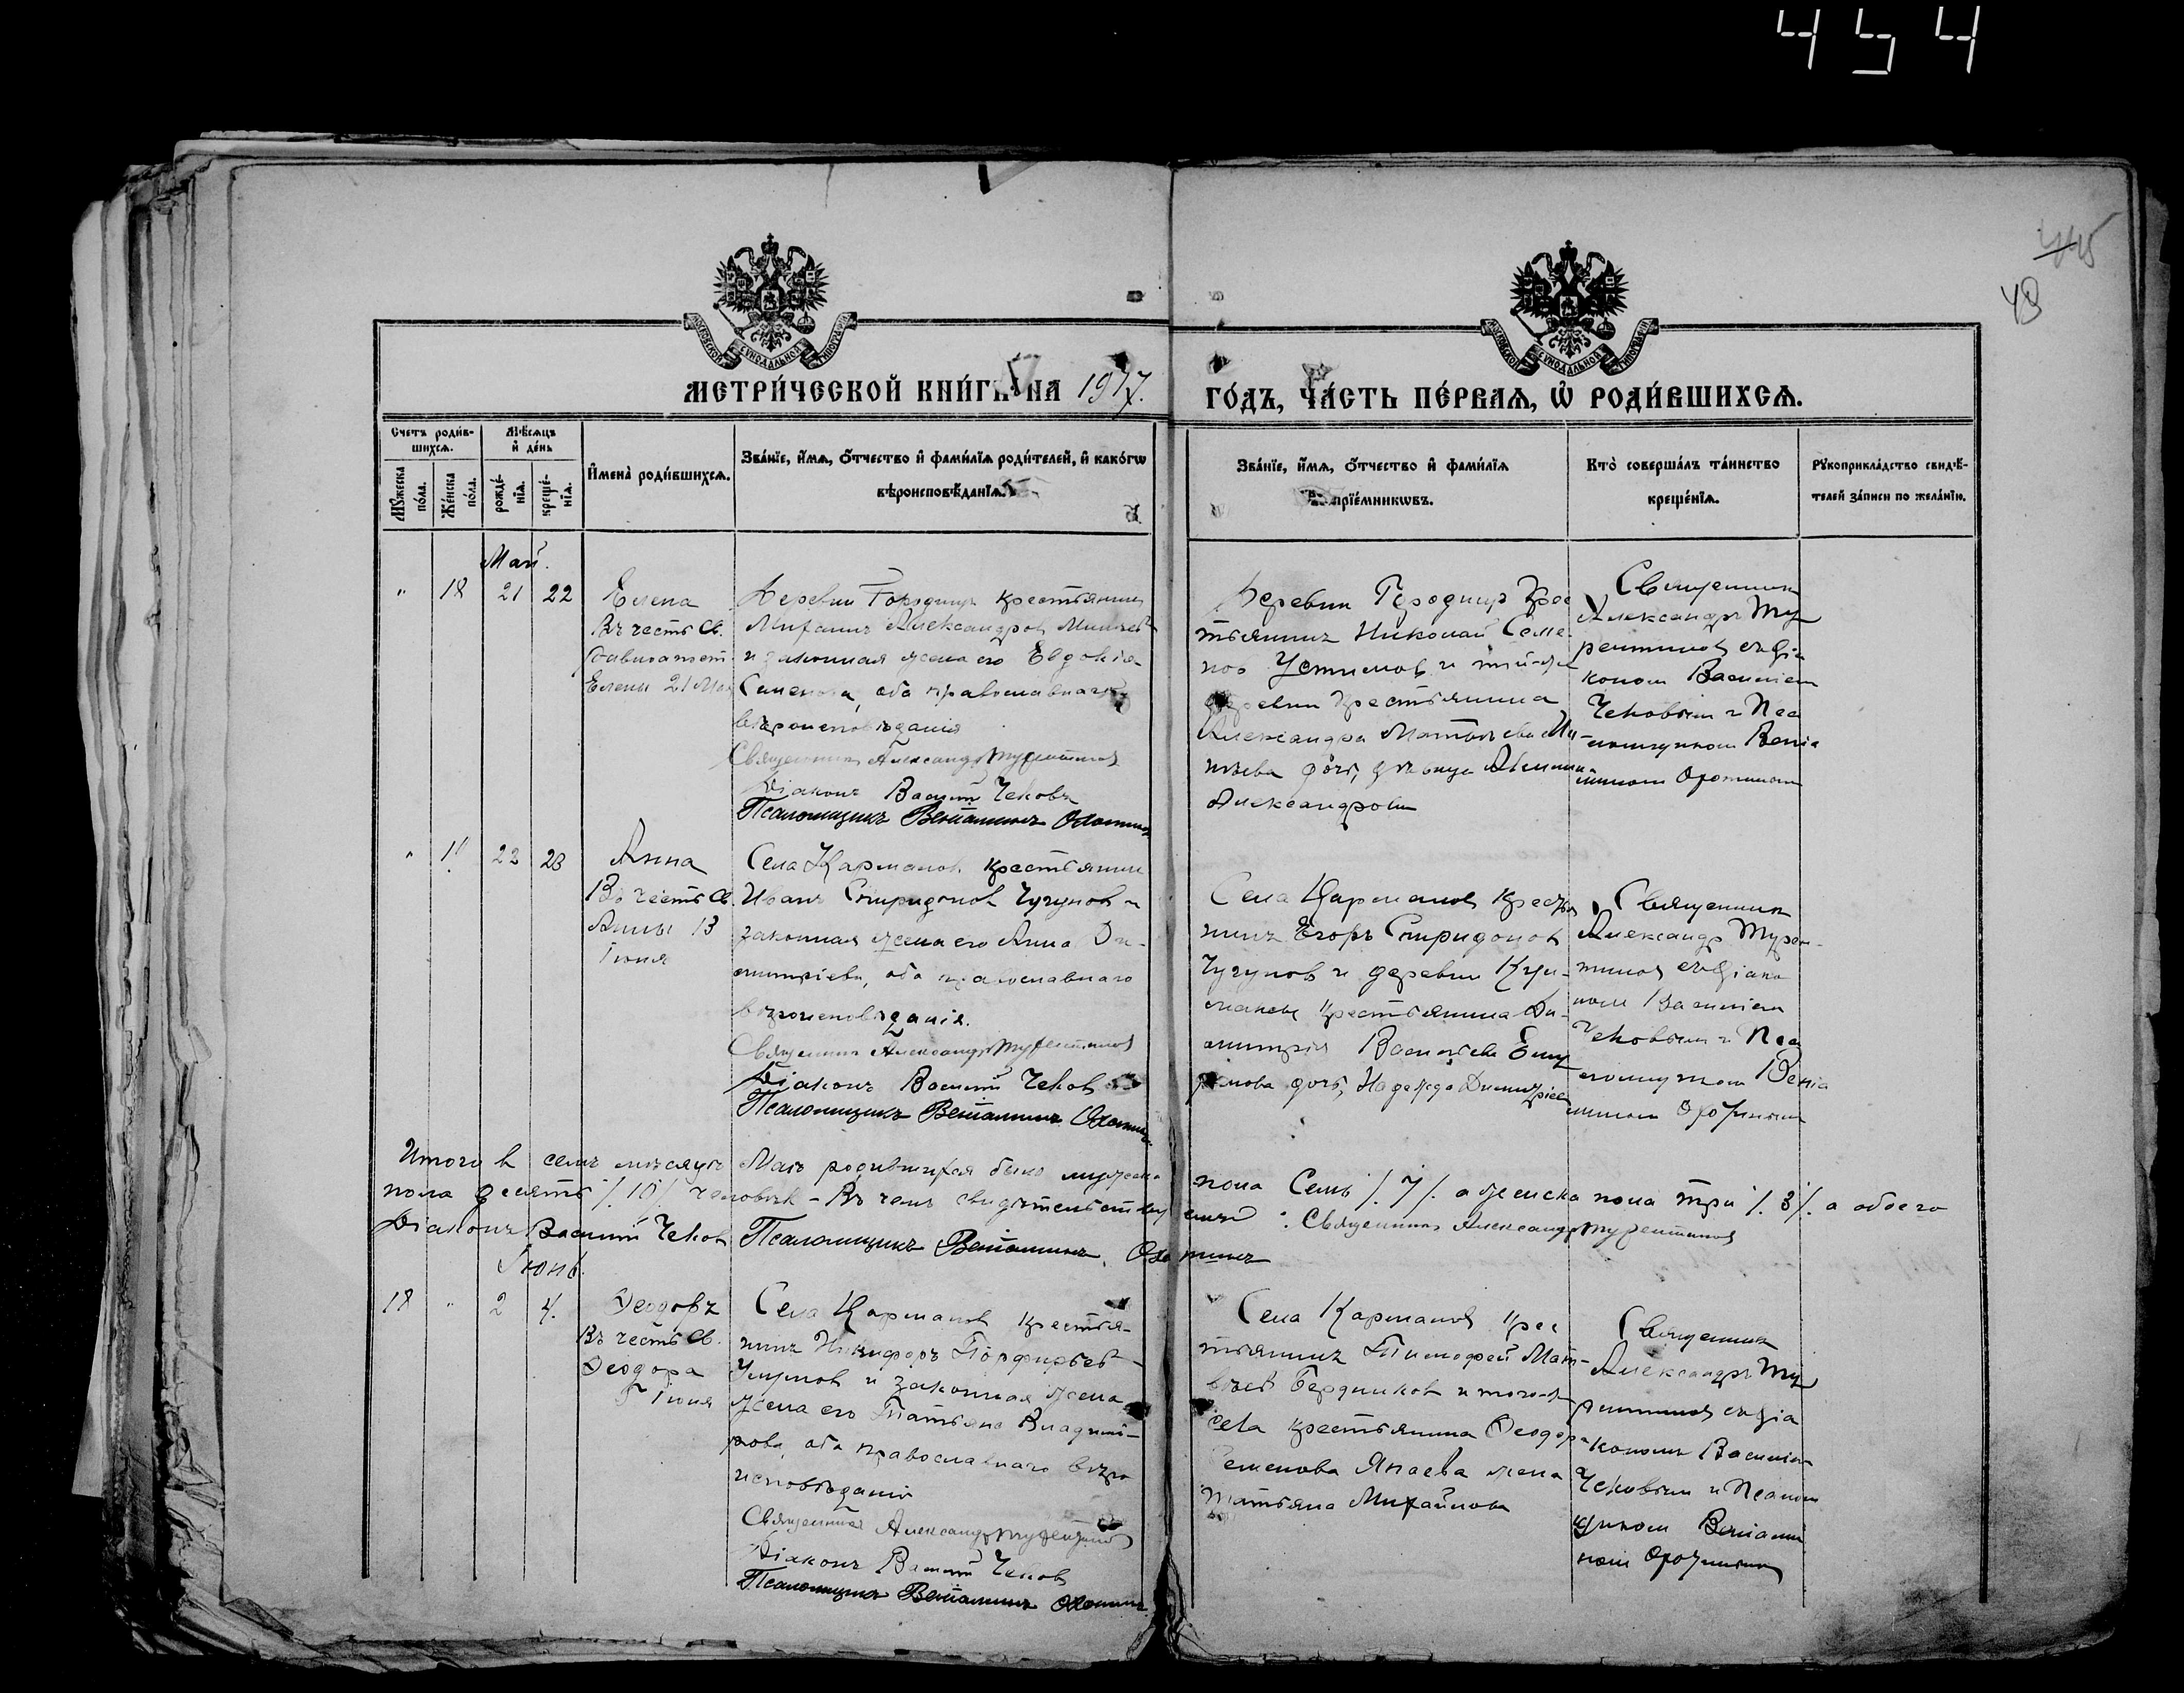 454
445
48
МОСКОВСКОЙ СѴНОДАЛЬНОЙ ТИПОГРАФІИ
МОСКОВСКОЙ СѴНОДАЛЬНОЙ ТИПОГРАФІИ
МЕТРИ́ЧЕСКОЙ КНИ́ГИ НА 1917.
ГО́ДЪ, ЧА́СТЬ ПЕ́РВАѦ, Ѡ҆ РОДИ́ВШИХСѦ.
Счетъ роди́в-
шихсѧ.
Мꙋ́жеска по́ла.
Же́нска по́ла.
Мѣ́сѧцъ
и҆ де́нь
рожде́-
нїѧ.
креще́-
нїѧ.
И҆мена̀ роди́вшихсѧ.
Зва́нїе, и҆́мѧ, ѻ҆́тчество и҆ фами́лїѧ роди́телей, и҆ како́гѡ
вѣроисповѣ́данїѧ.
Зва́нїе, и҆́мѧ, ѻ҆́тчество и҆ фами́лїѧ
прїе́мникѡвъ.
Кто̀ соверша́лъ та́инство
креще́нїѧ.
Рꙋкоприкла́дство свидѣ́-
телей за́писи по жела́нїю.
Май.
" 18 21 22
Елена
Въ честь Св.
Равноапост.
Елены 21 Мая
Деревни Городищъ крестьянинъ
Михаилъ Александров
и законная жена его Евдокія
Семенова, оба православнаго
вѣроисповѣданія
Священникъ Александръ Турентинов
Діаконъ Василій Чеков
Псаломщикъ Веніаминъ Охотинъ
Деревни Городищъ Крес
тьянинъ Николай Семе-
нов Устимов и той-же
деревни крестьянина
Александра Матвѣева
дочь, дѣвица
Александрова
Священник
Александръ Ту
рентинов съ діа
коном Василіем
Чековым и Пса
ломщиком Веніа
мином Охотиным
" 22 23
Анна
Въ честь Св.
Анны 13
Іюня
Села Карманов крестьянин
Иванъ Спиридонов Чугунов и
законная жена его Анна Ди-
митріева, оба православнаго
вѣроисповѣданія.
Священник Александръ Турентинов
Діаконъ Василій Чеков
Псаломщикъ Веніаминъ Охотинъ
Села Карманов крестья
нинъ Егоръ Спиридонов
Чугунов и деревни
крестьянина Ди-
митрія Васильева
дочь, Надежда Димитріев
Священник
Александр Турен-
тинов съ діако
ном Василіем
Чековым и Пса
ломщиком Веніа
мином Охотиным
Итого в семъ мѣсяцѣ Маѣ родившихся было мужеска пола Семь /.7/. а женска пола три /.3/. а обоего
пола десять /.10/. человѣк - Въ чемъ свидѣтельствуемъ: Священникъ Александръ Турентинов
Діаконъ Василій Чеков Псаломщикъ Веніаминъ Охотинъ
Іюнь.
18 " 2 4.
Ѳеодоръ
Въ честь Св.
Ѳеодора
5 Іюня
Села Карманов крестья-
нинъ Никифоръ Порфирьев
и законная жена
жена его Татьяна Владими-
рова, оба православнаго вѣро
исповѣданія
Священник Александръ Турентинов
Діаконъ Василій Чеков
Псаломщикъ Веніаминъ Охотинъ
Села Карманов крес
тьянинъ Тимофей Мат-
вѣев Бердников и того-ж
села крестьянина Ѳеодора
Семенова Янаева жена
Татьяна Михайлова
Священник
Александръ Ту
рентинов съ діа
коном Василіем
Чековым и Псалом
щиком Веніами
ном Охотиным